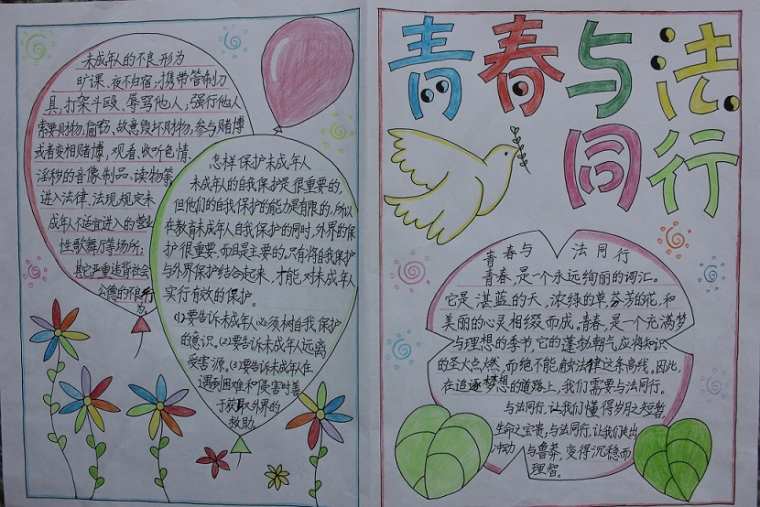 未成年人的不良形为
旷课、夜不归宿，携带管制刀
具，打架斗殴、辱骂他人，强行他人
索要财物，偷窃、故意毁坏财物，参与赌博
或者变相赌博，观看、收听色情、
淫秽的音像制品、读物等，
进入法律、法规规定未
成年人不适宜进入的营业
性歌舞厅等场所；
其它严重违背社会
公德的不良行
怎样保护未成年人
未成年人的自我保护是很重要的，
但他们的自我保护的能力是有限的，所以
在教育未成年人自我保护的同时，外界的保
护很重要，而且是主要的，只有将自我保护
与外界保护结合起来，才能对未成年人
实行有效的保护。
(1)要告诉未成年人必须树自我保护
的意识，(2)要告诉未成年人远离
受害源，(3)要告诉未成年人在
遇到困难和侵害时善
于获取外界的
救助
青春与法
同行
青春与 法同行
青春，是一个永远绚丽的词汇。
它是湛蓝的天，浓绿的草，芬芳的花，和
美丽的心灵相缀而成，青春，是一个充满梦
与理想的季节，它的蓬勃朝气应将知识
的圣火点燃，而绝不能触法律这条高线。因此，
在追逐梦想的道路上，我们需要与法同行。
与法同行，让我们懂得岁月之短暂，
生命之宝贵；与法同行，让我们走出
冲动与鲁莽，变得沉稳而
理智。